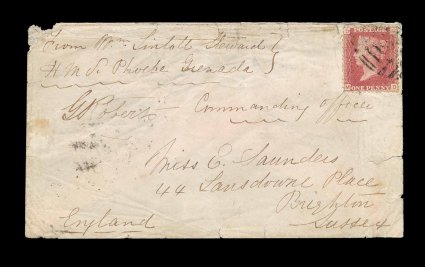 From Wm Sintott Steward
H.M.S. Phoebe Grenada
Commanding officer
Miss E. Saunders
44 Lansdowne Place
Brighton
Sussex
England
POSTAGE
ONE PENNY